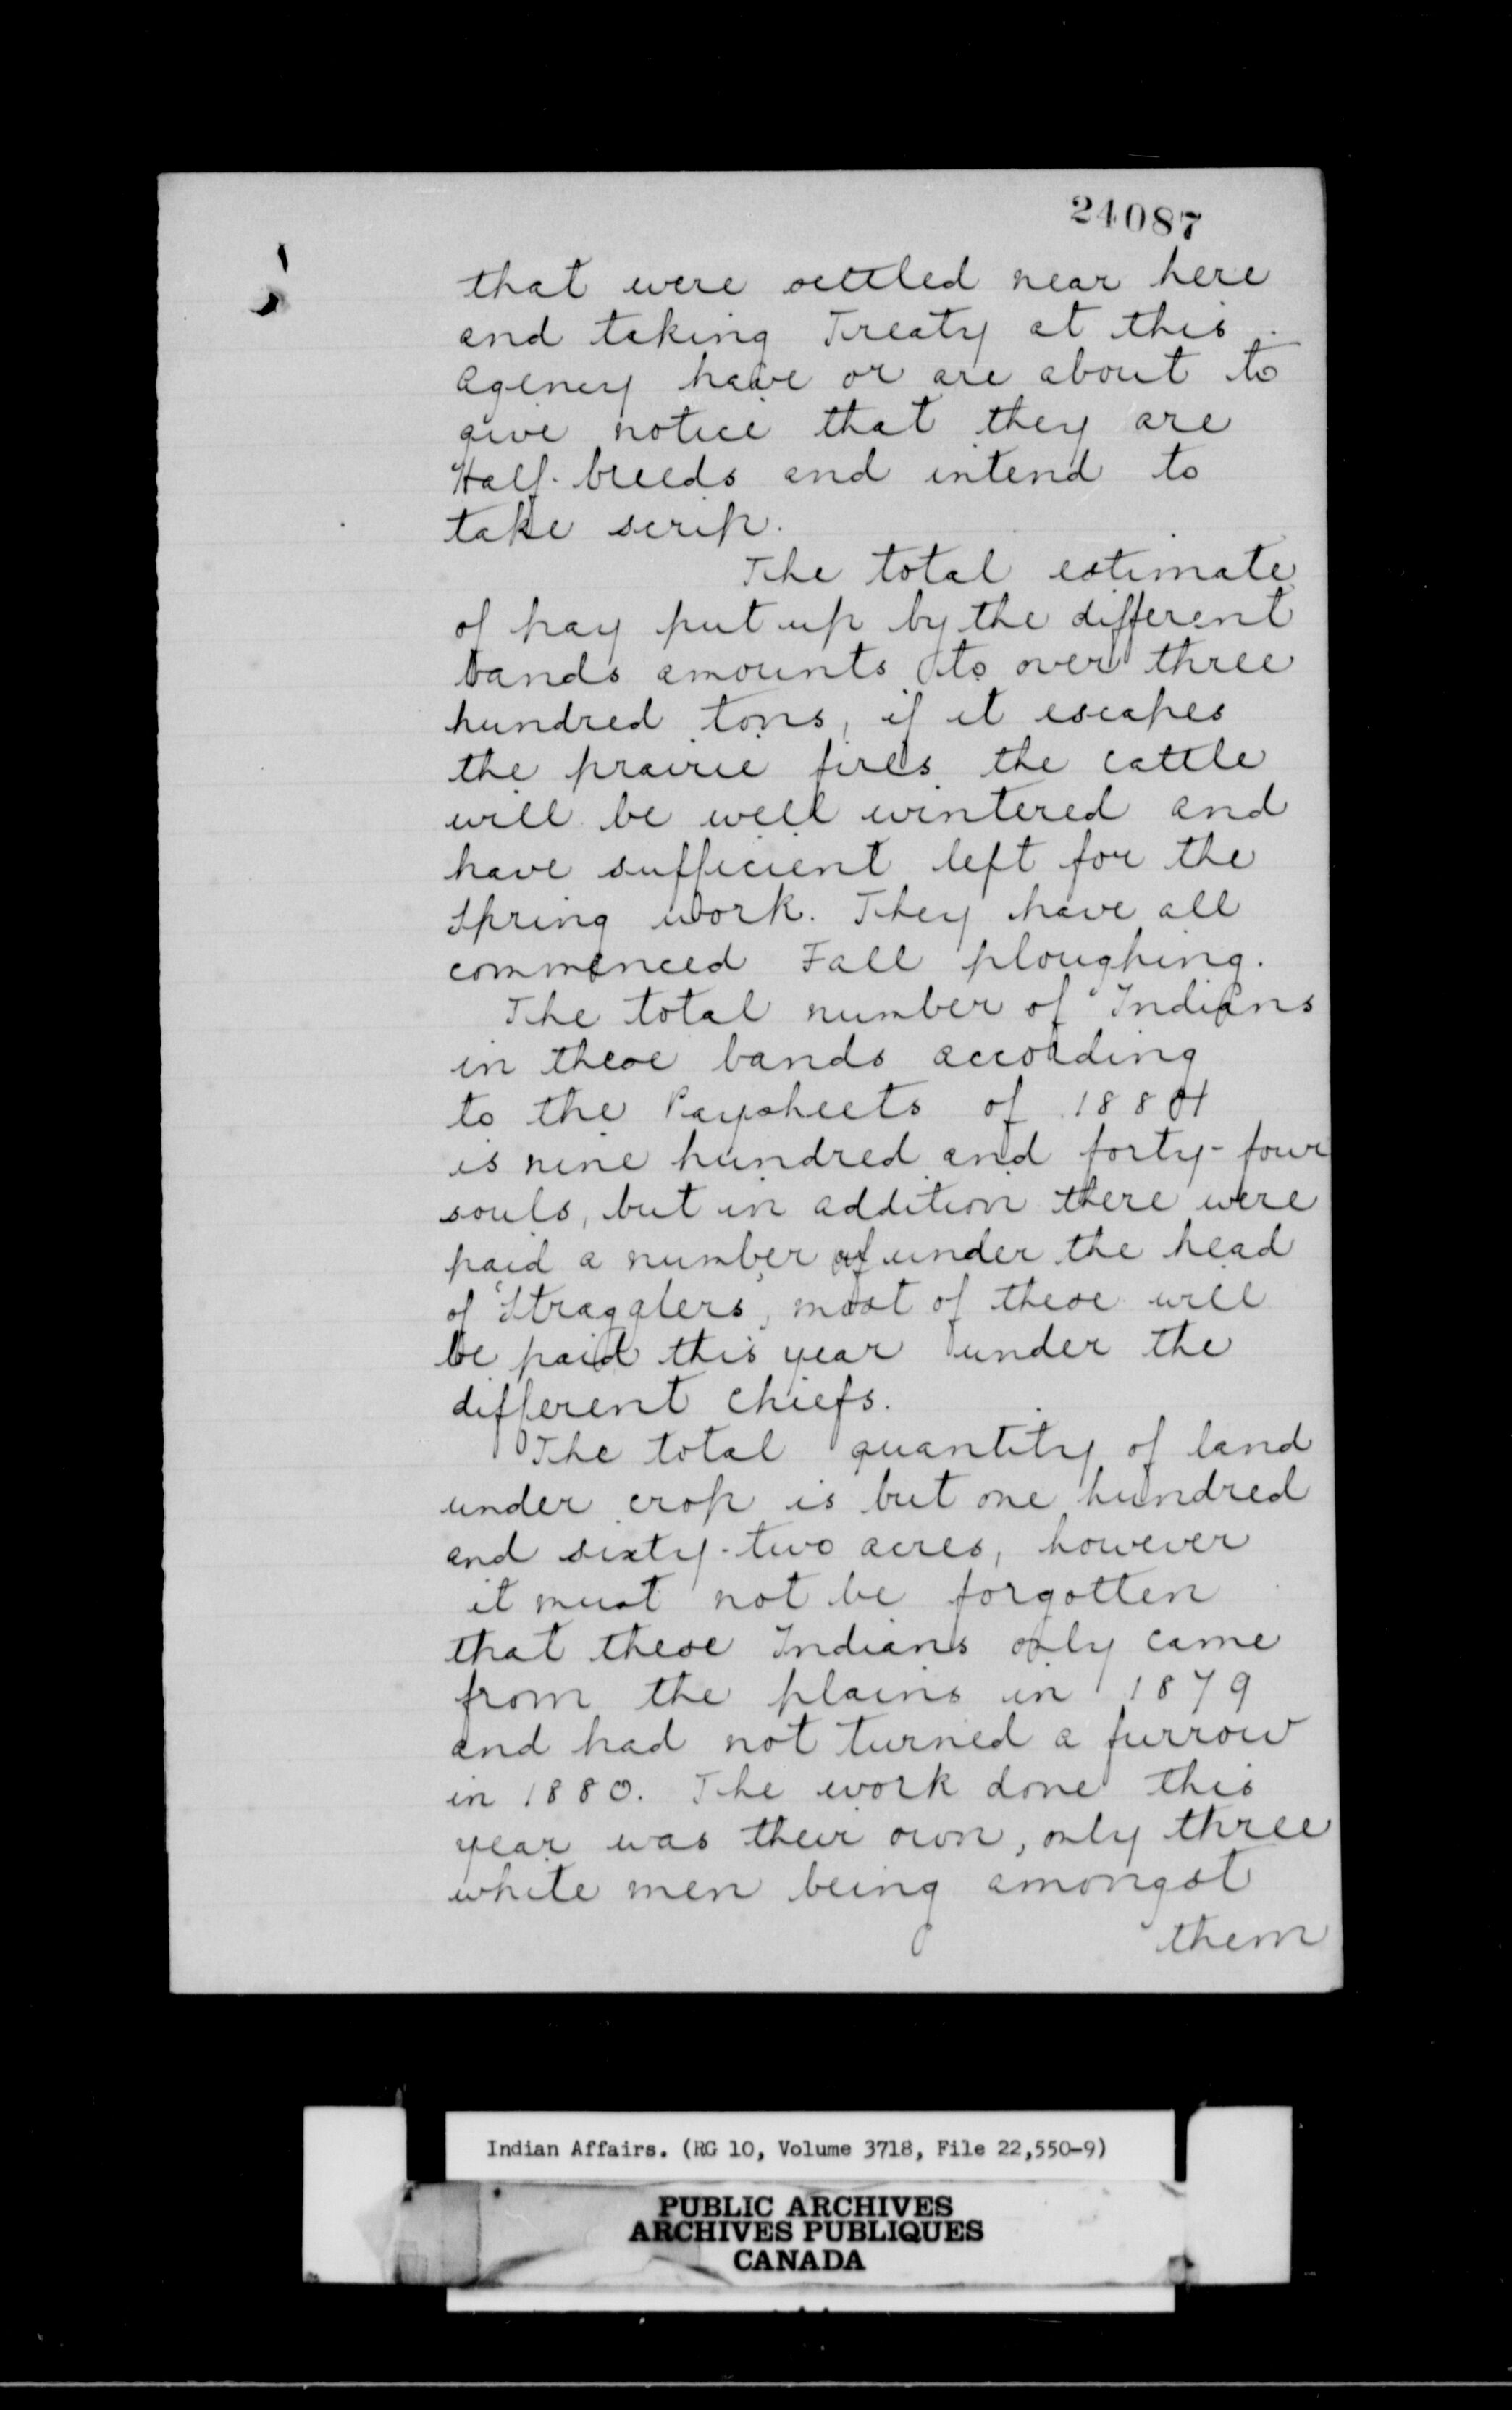 24087
that were settled near here
and taking Treaty at this
Agency have or are about to
give notice that they are
Half-breeds and intend to
take scrip.
The total estimate
of hay put up by the different
bands amounts to over three
hundred tons, if it escapes
the prairie fires the cattle
will be well wintered and
have sufficient left for the
Spring work. They have all
commenced Fall ploughing.
The total number of Indians
in these bands according
to the Paysheets of 1884
is nine hundred and forty-four
souls, but in addition there were
paid a number of under the head
of "Stragglers", most of these will
be paid this year under the
different Chiefs.
The total quantity of land
under crop is but one hundred
and sixty-two acres, however
it must not be forgotten
that these Indians only came
from the plains in 1879
and had not turned a furrow
in 1880. The work done this
year was their own, only three
white men being amongst
them
Indian Affairs. (RG 10, Volume 3718, File 22,550-9)
PUBLIC ARCHIVES
ARCHIVES PUBLIQUES
CANADA